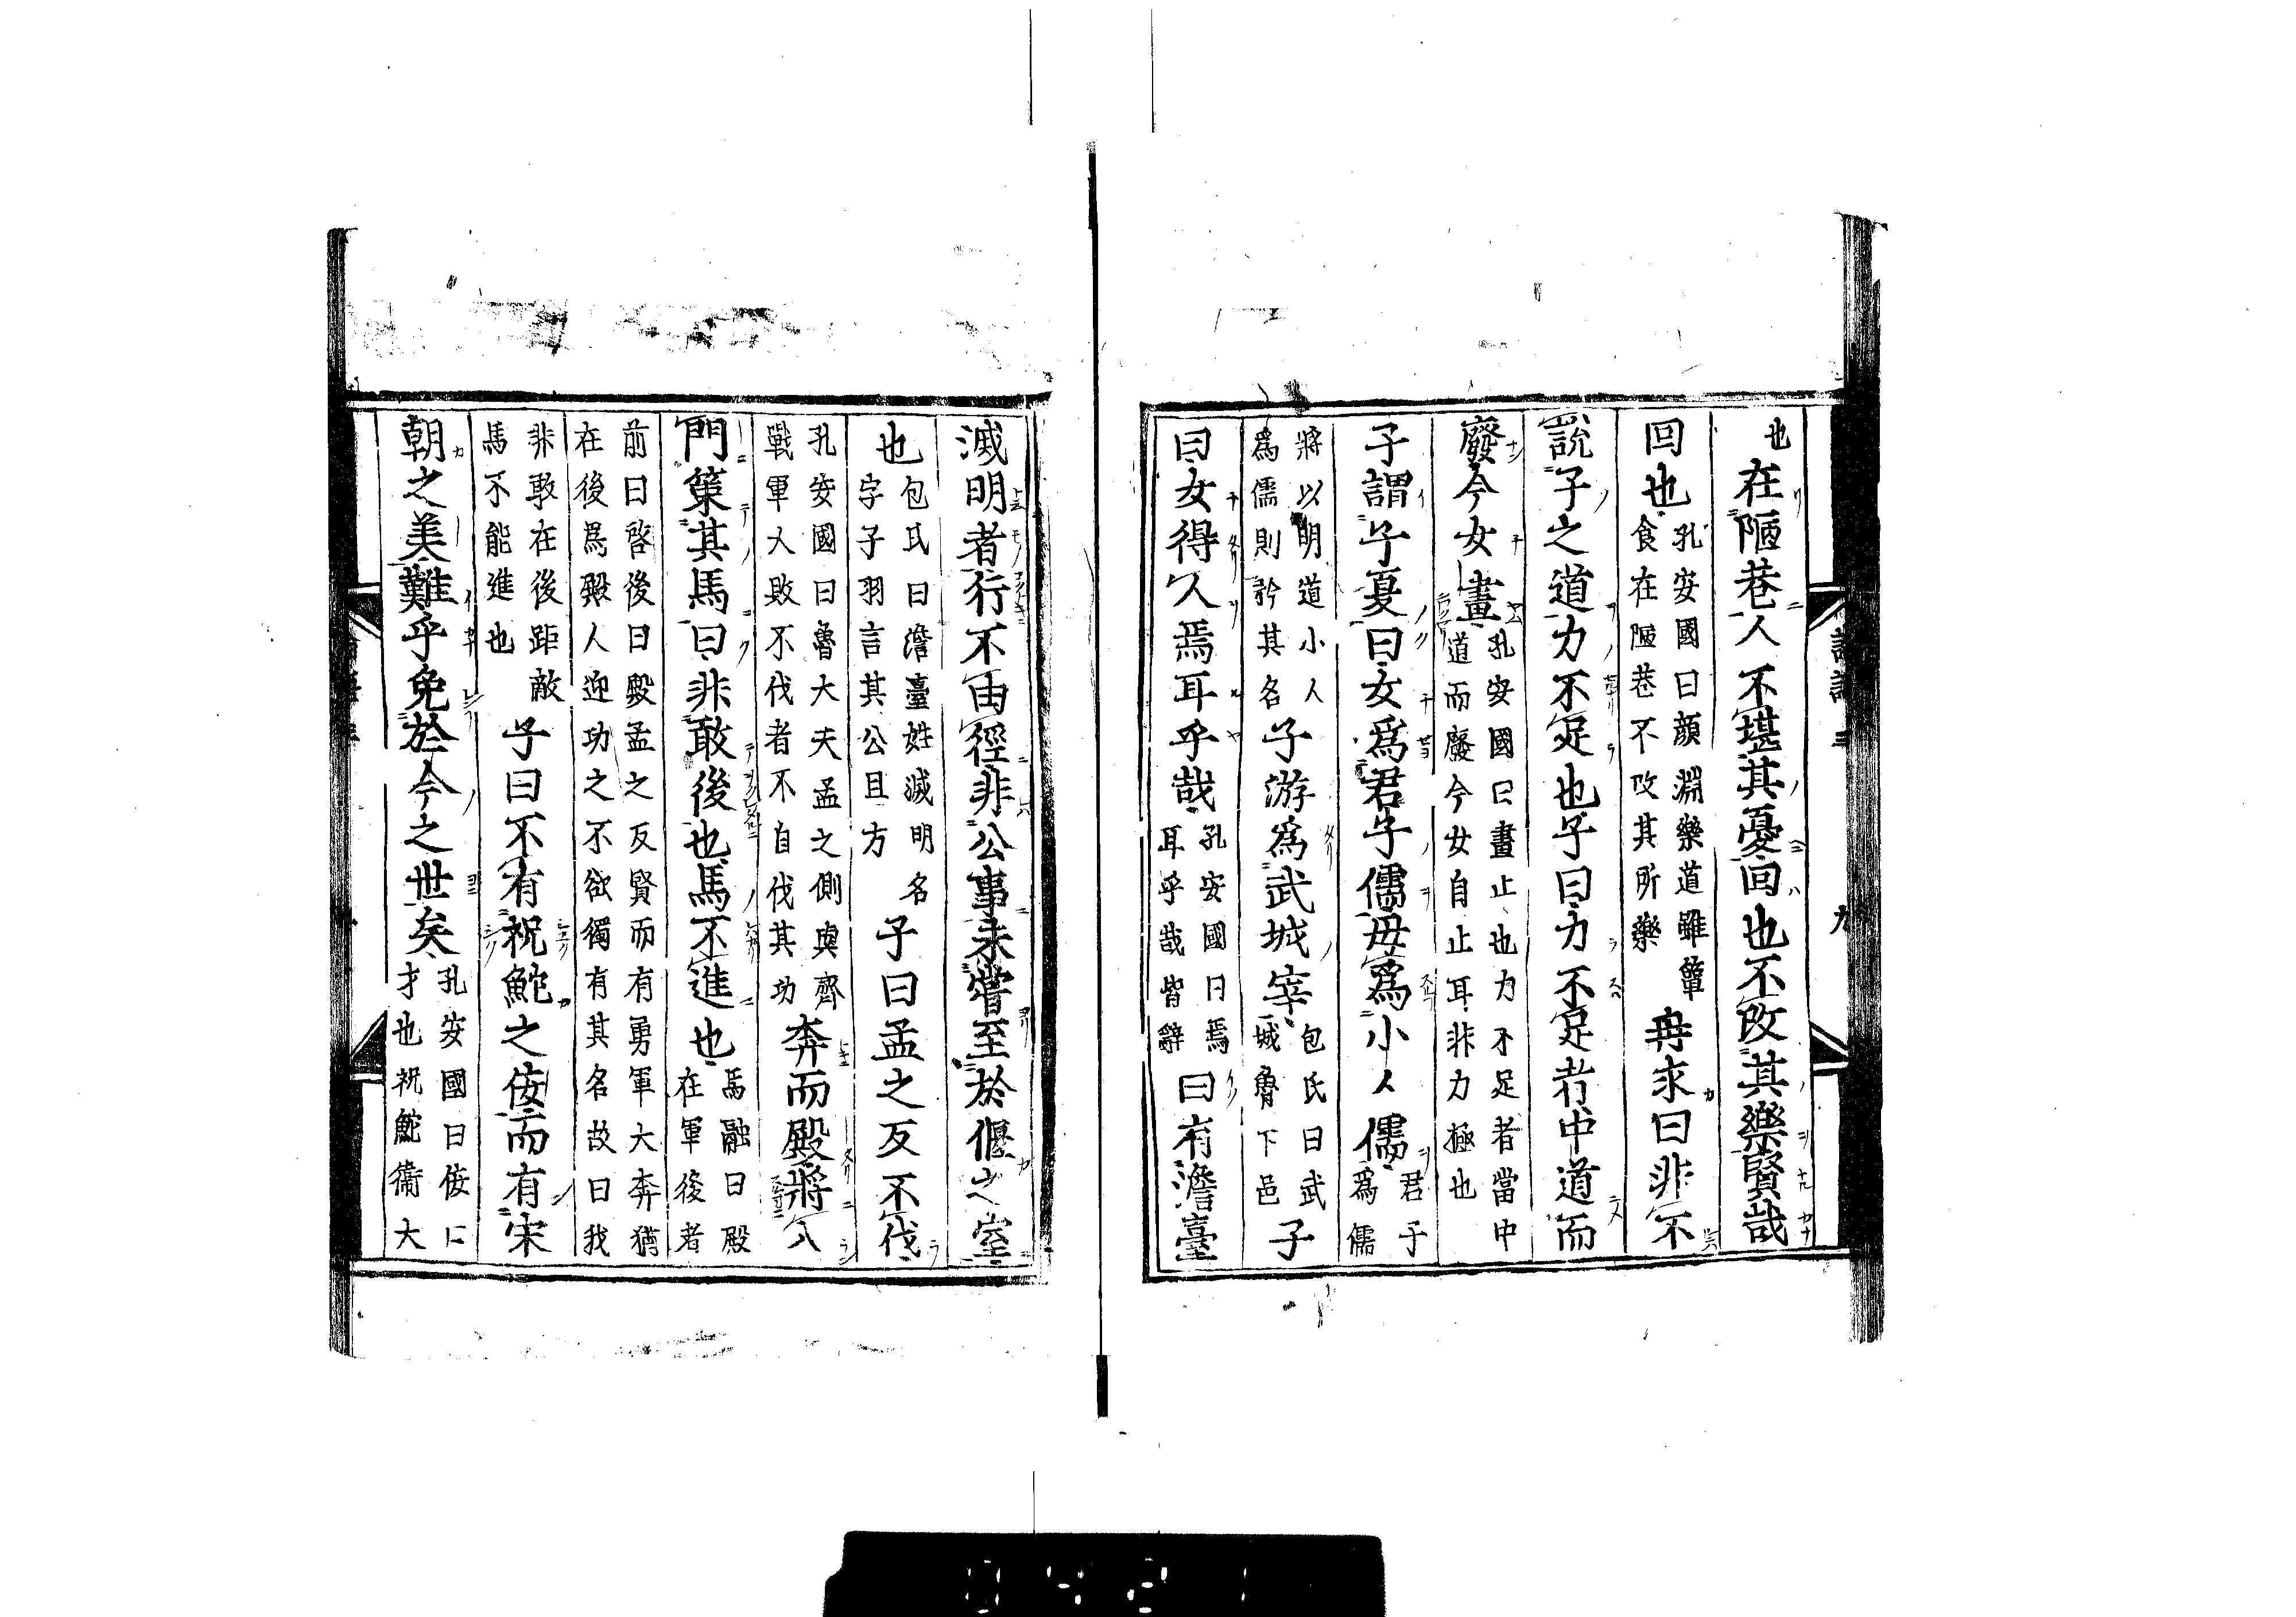 也在陋巷人不堪其憂回也不改其樂賢哉
回也孔安國曰顔淵樂道雖簞食在陋巷不改其所樂冉求曰非不
說子之道力不足也子曰力不足者中道而
廢今女畫孔安國曰畫止也力不足者當中道而廢今女自止耳非力極也
子謂子夏曰女爲君子儒毋爲小人儒君子爲儒
將以明道小人爲儒則矜其名子游爲武城宰包氏曰武城魯下邑子
曰女得人焉耳乎哉孔安國曰焉耳乎哉皆辭曰有澹臺
滅明者行不由徑非公事未嘗至於偃之室
也包氏曰澹臺姓滅明名字子羽言其公且方子曰孟之反不伐
孔安國曰魯大夫孟之側與齊戰軍大敗不伐者不自伐其功奔而殿將入
門策其馬曰非敢後也馬不進也馬融曰殿在軍後者
前曰啓後曰殿孟之反賢而有勇軍大奔猶在後爲殿人迎功之不欲獨有其名故曰我
非敢在後距敵馬不能進也子曰不有祝鮀之佞而有宋
朝之美難乎免於今之世矣孔安國曰佞口才也祝鮀衞大